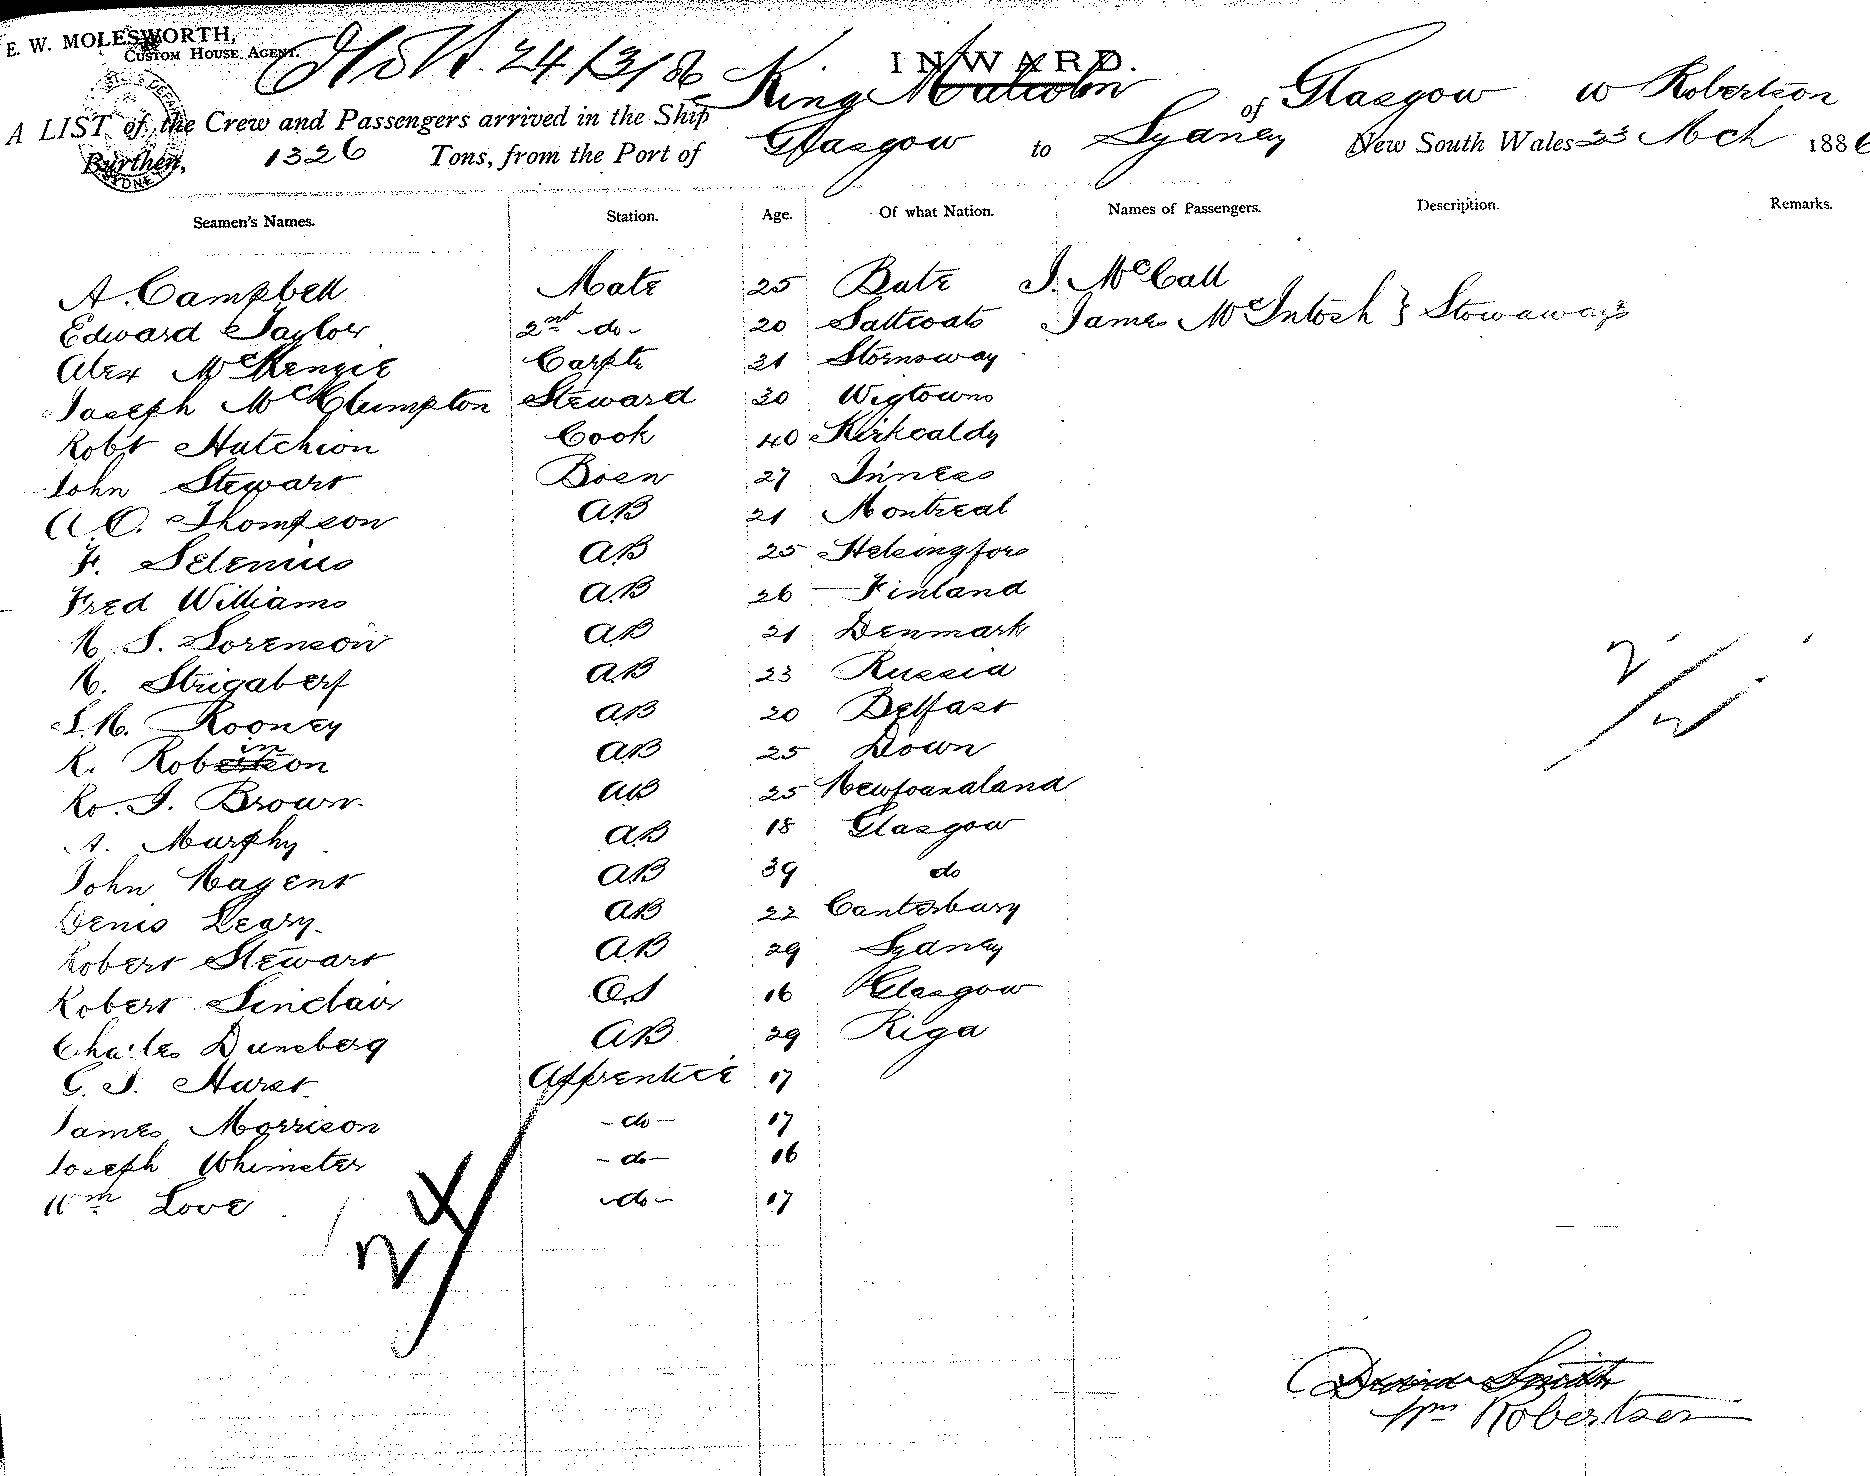 E. W. MOLESWORTH,
CUSTOM HOUSE AGENT.
24/3/86
INWARD.
A LIST of the Crew and Passengers arrived in the Ship King Malcolm of Glasgow W Robertson
Burthen, 1326 Tons, from the Port of Glasgow to Sydney New South Wales 23 Mch 1886
Seamen's Names. Station. Age. Of what Nation. Names of Passengers. Description. Remarks.
A. Campbell Mate 25 Bute J. McCall
Edward Taylor 2nd -do- 20 Saltcoats James McIntosh } Stowaways
Alex McKenzie Carptr 21 Stornoway
Joseph McClumpton Steward 30 Wigtowns
Robt Hutchion Cook 40 Kirkcaldy
John Stewart Bosn 27 Inness
A. O. Thompson AB 21 Montreal
F. Selenius AB 25 Helsingfors
Fred Williams AB 26 Finland
N. S. Sorenson AB 21 Denmark
N. Strigaberf AB 23 Russia
S. N. Rooney AB 20 Belfast
R. Robinson AB 25 Down
Ro. J. Brown AB 25 Newfoundland
A. Murphy AB 18 Glasgow
John Nagent AB 39 do
Denis Leary AB 22 Canterbury
Robert Stewart AB 29 Sydney
Robert Sinclair O.S 16 Glasgow
Charles Dunsberg AB 29 Riga
C. J. Hurst Apprentice 17
James Morrison -do- 17
Joseph Whimster -do- 16
Wm Love -do- 17
24
David Smith
Wm Robertson